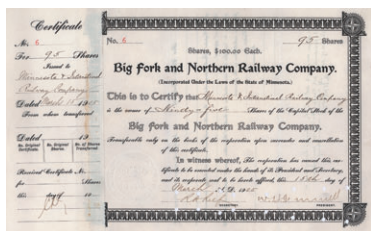 Certificate
No. 6
For 95 Shares
Issued to
Minnesota & International
Railway Company
Dated March
From whom transferred
Dated 19
No. Original Certificate
No. Original Shares
No. of Shares Transferred
Received Certificate No.
for Shares
this day of
No. 6
95 Shares
Shares, $100.00 Each.
Big Fork and Northern Railway Company.
(Incorporated Under the Laws of the State of Minnesota.)
This is to Certify that Minnesota & International Railway Company
is the owner of Ninety-five Shares of the Capital Stock of the
Big Fork and Northern Railway Company.
Transferable only on the books of the corporation upon surrender and cancellation
of this certificate.
In witness whereof, The corporation has caused this cer-
tificate to be executed under the hands of its President and Secretary,
and its corporate seal to be hereto affixed, this day of
March A.D.
SECRETARY.
PRESIDENT.